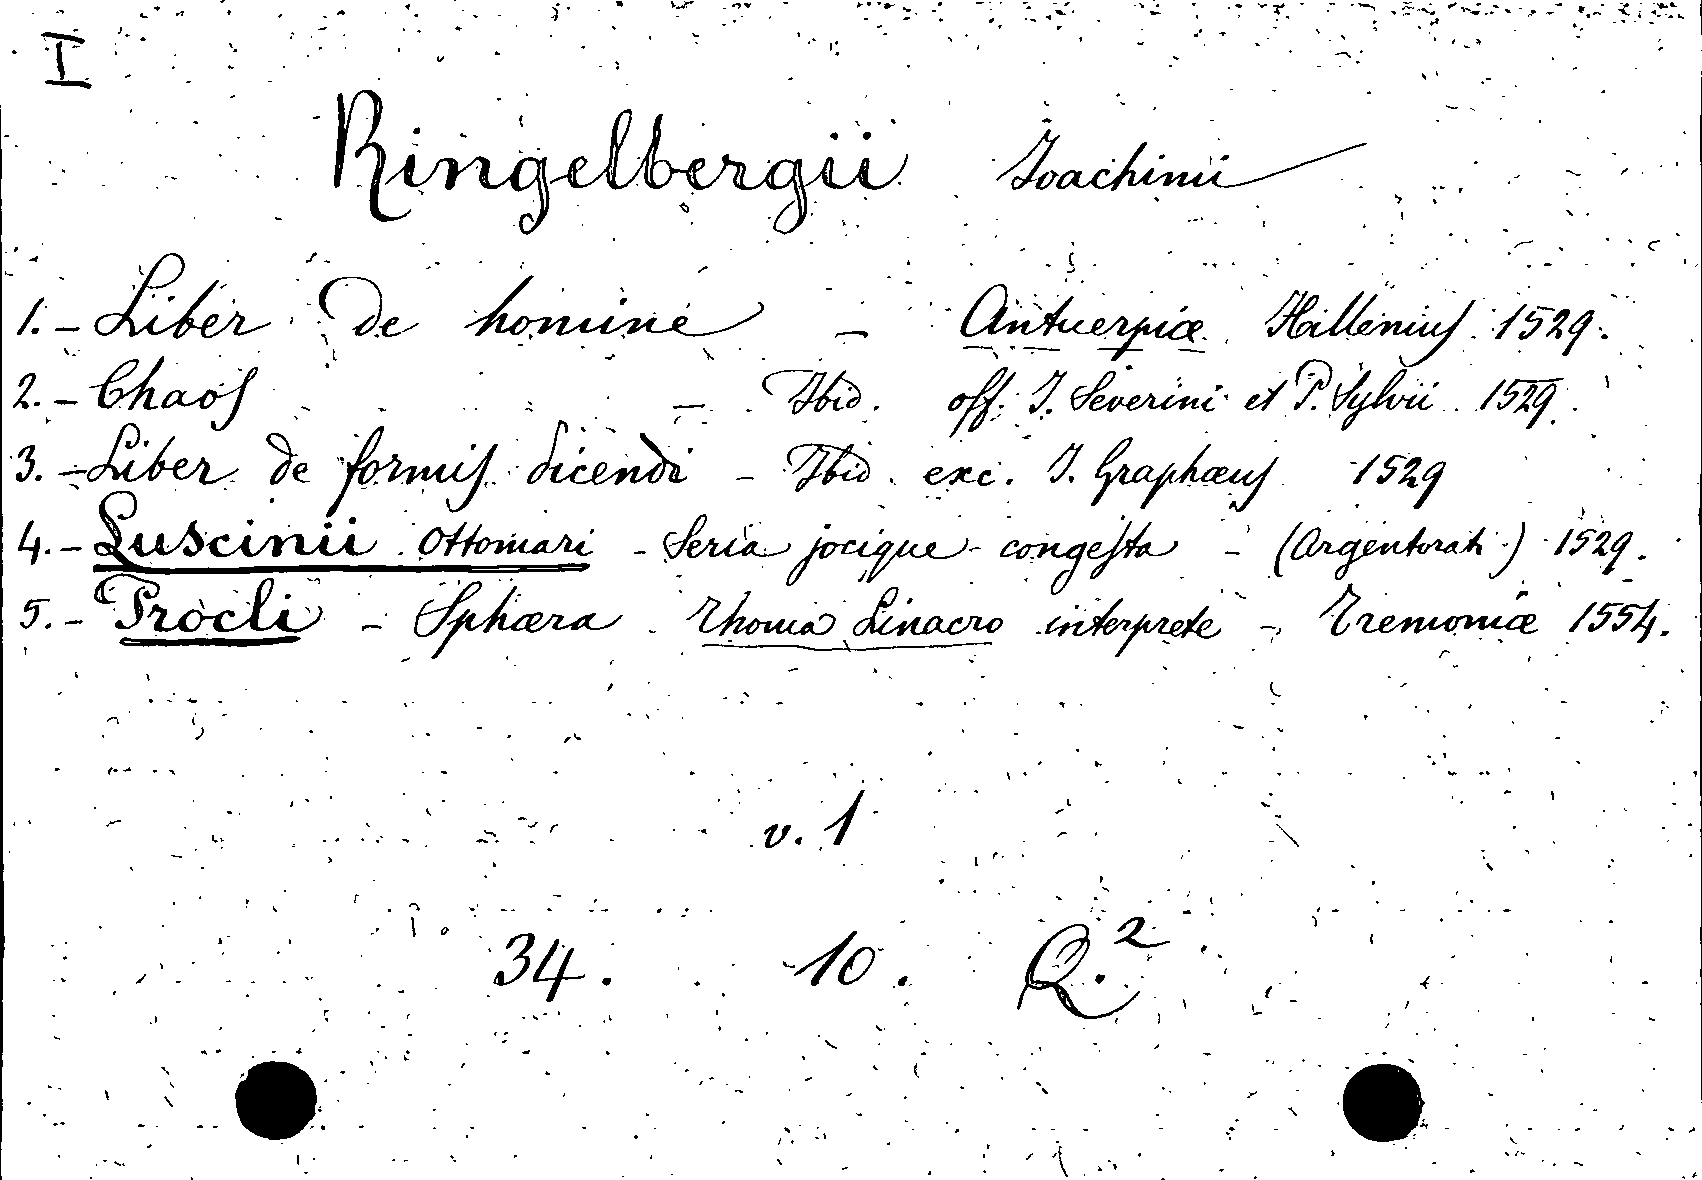 I
Ringelbergii Joachimi
1. - Liber de homine - Antuerpiæ Hillenius 1529.
2. - Chaos - Ibid. off. J. Severini et P. Sylvii 1529.
3. - Liber de formis dicendi - Ibid. exc. J. Graphæus 1529
4. - Luscinii Ottomari - Seria jocique congesta - (Argentorati) 1529.
5. - Procli - Sphæra Thoma Linacro interprete - Tremoniæ 1554.
v. 1
34. 10. Q.²